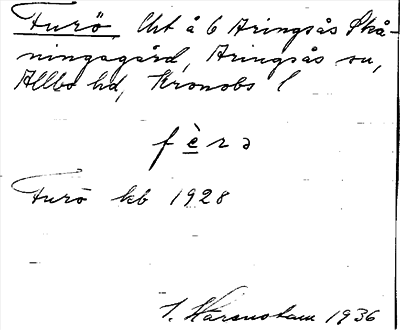 Furö, Uht å 6 Aringsås Skå-
ningagård, Aringsås sn,
Allbo hd, Kronobs l
fèrə
Furö kb 1928
1936